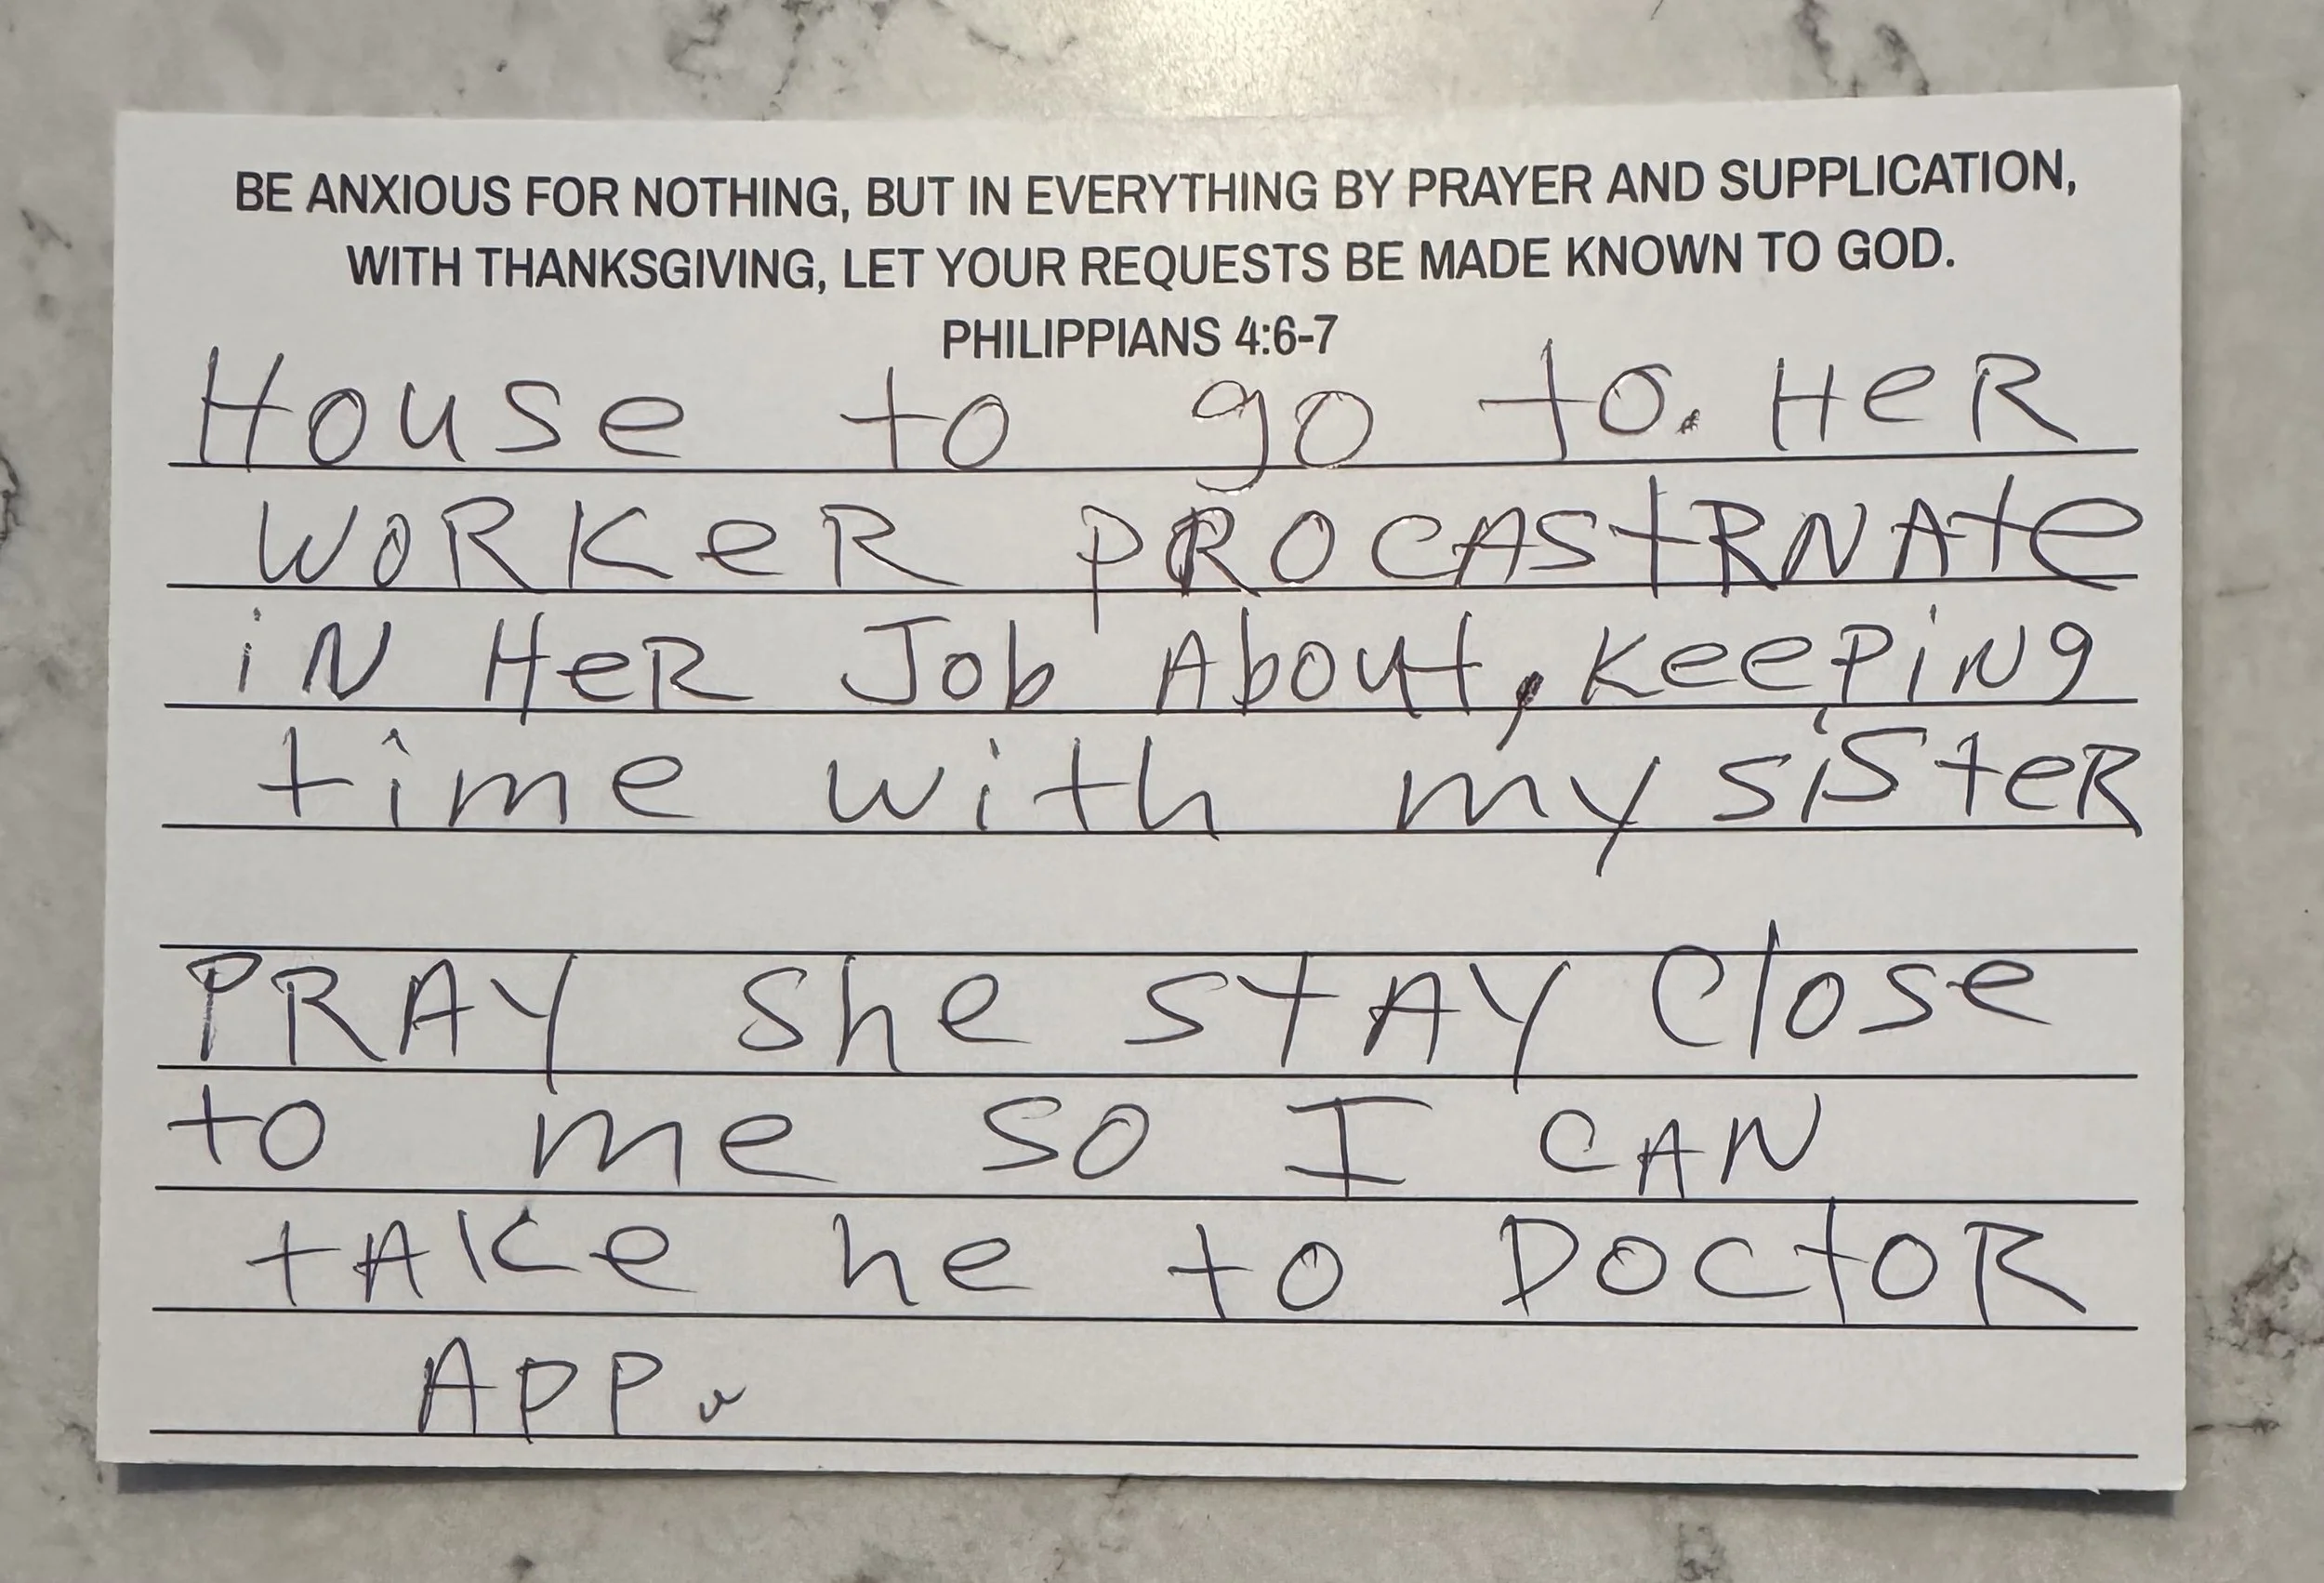 BE ANXIOUS FOR NOTHING, BUT IN EVERYTHING BY PRAYER AND SUPPLICATION,
WITH THANKSGIVING, LET YOUR REQUESTS BE MADE KNOWN TO GOD.
PHILIPPIANS 4:6-7
House to go to. HeR
WORKeR PROCAStRNAte
iN HeR Job About, KeePiNg
time with my sisteR
PRAY she stAY Close
to me so I CAN
tAKe he to DoctoR
APP.